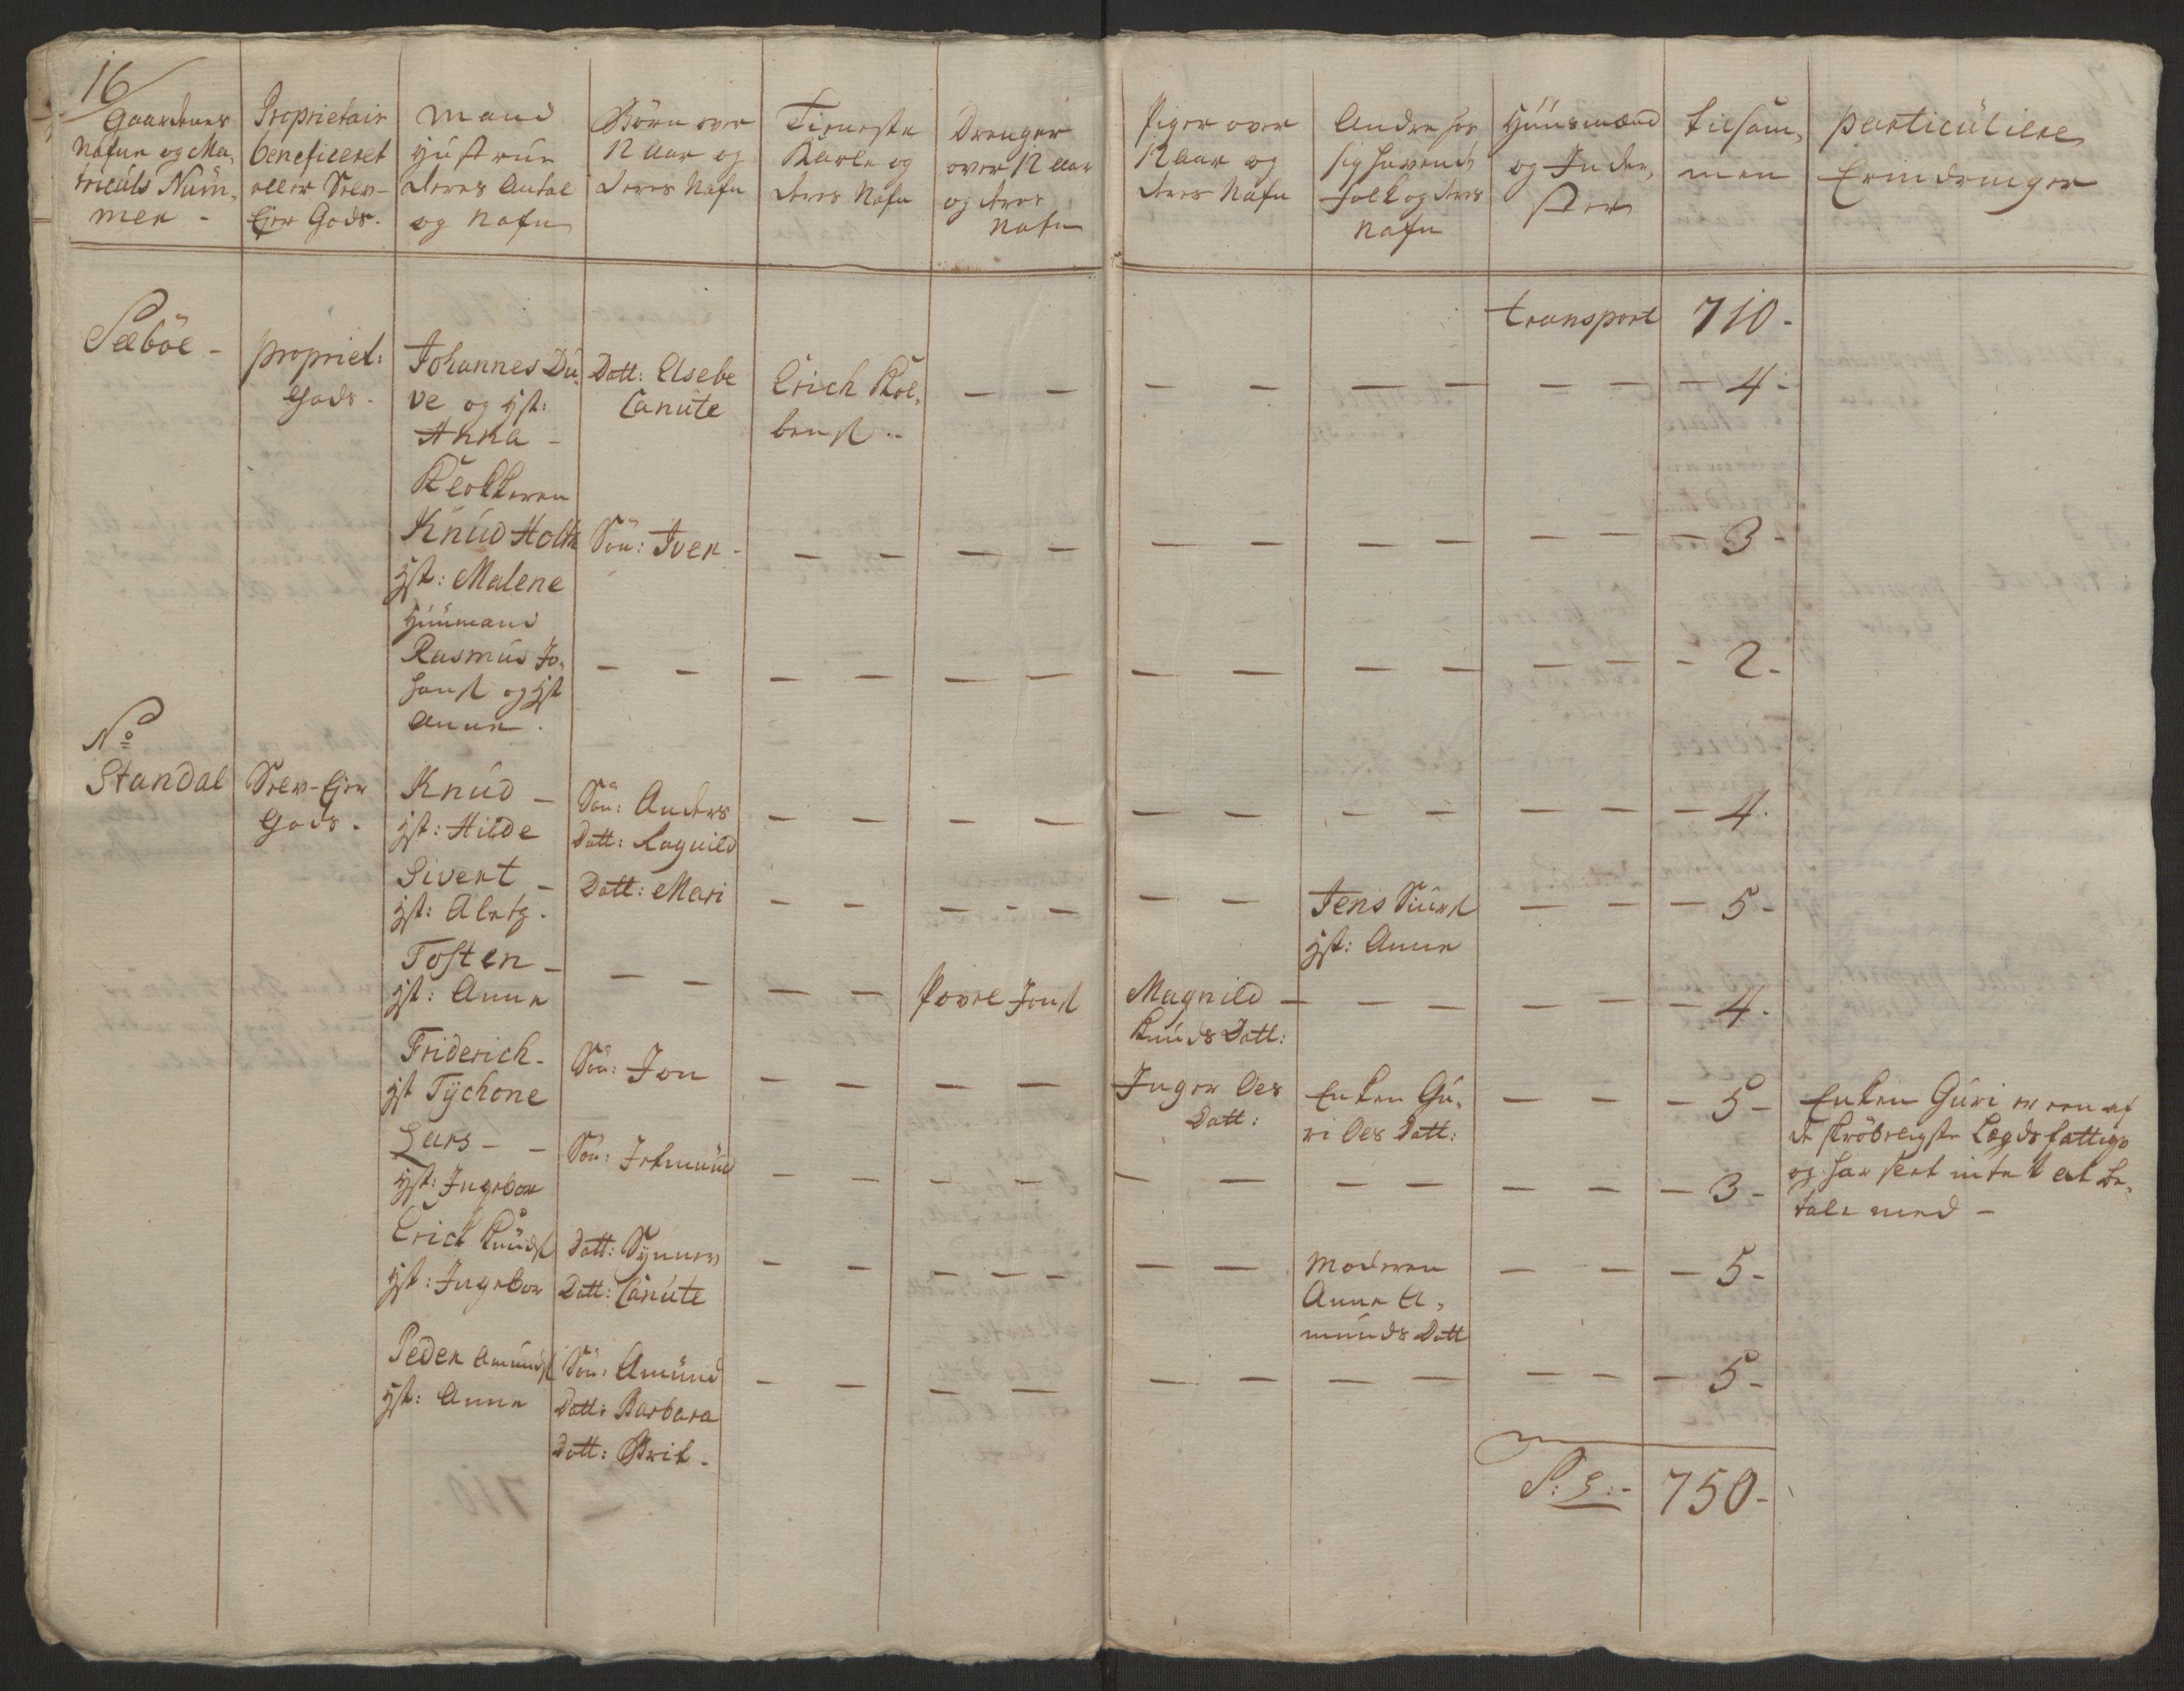 16
Gaardenes
Nafne og Ma,
triculs Num,
mer -
Proprietair
beneficeret
eller Selv-
Ejer Gods.
Mand
Hustrue
deres Antal
og Nafn
Börn over
12 Aar og
deres Nafn
Tieneste
Karle og
deres Nafn
Drenger
over 12 Aar
og deres
Nafn
Piger over
12 Aar og
deres Nafn
Andre hos
sig havende
folk og deres
Nafn
Huusmænd
og Inder,
ster
tilsam,
men
particuliere
Erindringer
transport 710-
Sæböe -
propriet:
Gods.
Johannes Du,
ve og Hst:
Anna -
Datt: Elsebe
Canute
Erich Kol,
bens
— — — — — — — — — 4 -
Klokkeren
Knud Holtz
Hst: Malene
Sön: Iver -
— — — — — — — — — — — 3 -
Huusmand
Rasmus Jo,
hans og Hst
Anne.
— — — — — — — — — — — — — 2 -
No
Standal
Selv-Ejer
Gods.
Knud -
Hst: Hilde
Sön: Anders
Datt: Ragnild
— — — — — — — — — — — 4.
Sivert -
Hst: Aletz.
Datt: Mari
— — — — — — —
Jens Siurs
Hst: Anne
— — — 5 -
Tosten -
Hst: Anne
— — — —
Povel Jons
Magnild
Knuds Datt:
— — — — — — 4.
Friderich -
Hst Tychone
Sön: Jon
— — — —
Inger Oes
Datt:
Enken Gu,
ri Oes Datt:
— — — 5 -
Enken Guri er een af
de skröbeligste Lægds fattige
og har slet intet at be,
tale med -
Lars - -
Hst: Ingebor
Sön: Jetmund
— — — — — — — — — — — — 3 -
Erich Knuds
Hst: Ingebor
Datt: Synnev
Datt: Canute
— — — — — — —
Moderen
Anne A,
munds Datt
— — — 5 -
Peder Amunds
Hst: Anne
Sön: Amund
Datt: Barbara
Datt: Brit -
— — — — — — — — — — — 5 -
750-